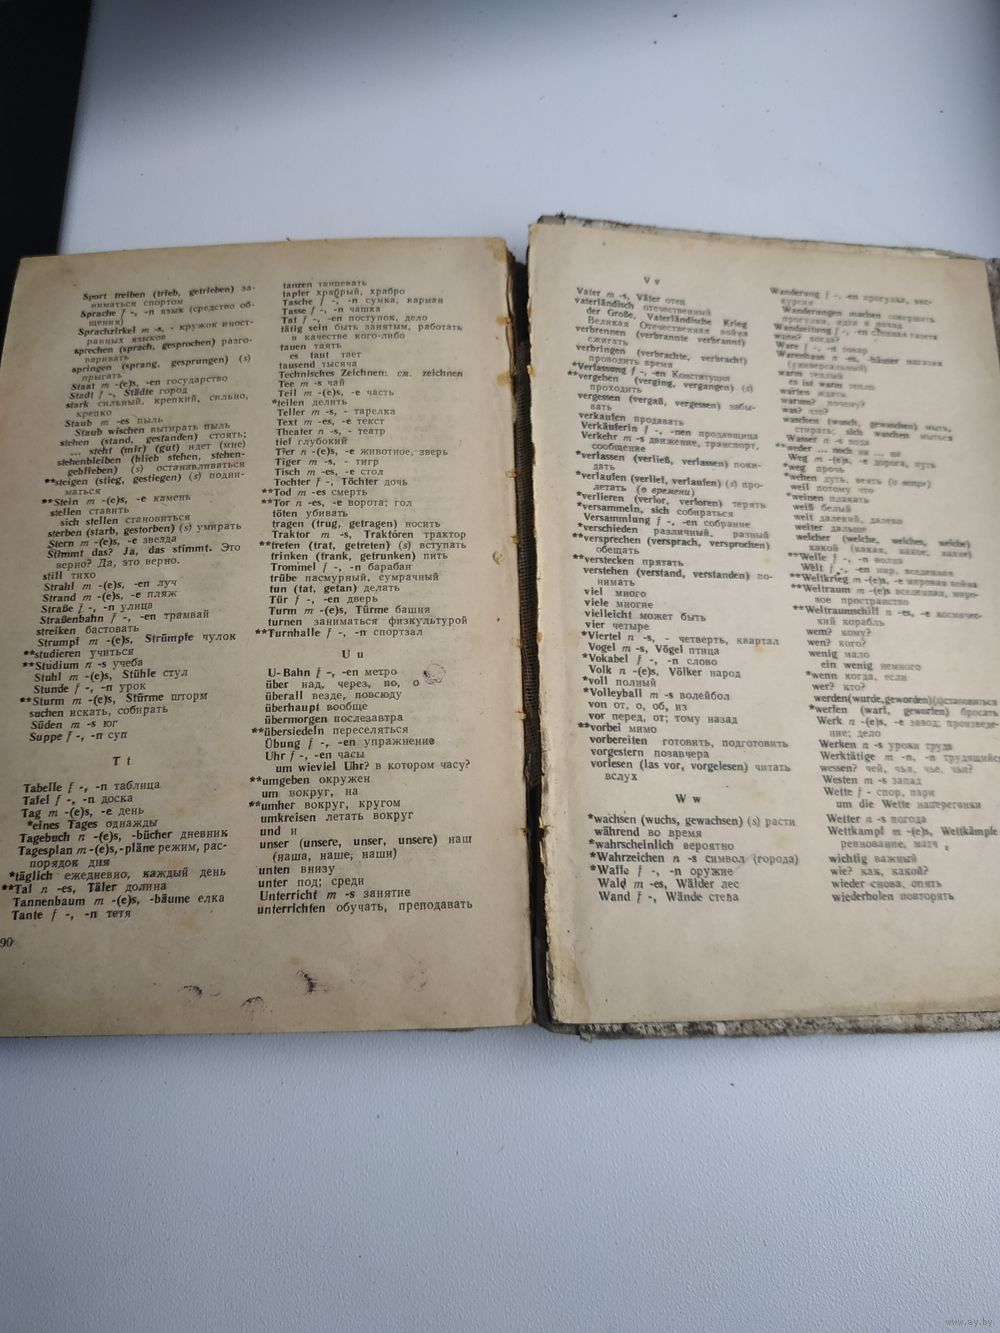 Sport treiben (trieb, getrieben) за-
ниматься спортом
Sprache f -, -n язык (средство об-
щения)
Sprachzirkel m -s, - кружок иност-
ранных языков
sprechen (sprach, gesprochen) разго-
варивать
springen (sprang, gesprungen) (s)
прыгать
Staat m -(e)s, -en государство
Stadt f -, Städte город
stark сильный, крепкий, сильно,
крепко
Staub m -es пыль
Staub wischen вытирать пыль
stehen (stand, gestanden) стоять;
... steht (mir) (gut) идет (мне)
stehenbleiben (blieb stehen, stehen-
geblieben) (s) останавливаться
**steigen (stieg, gestiegen) (s) подни-
маться
**Stein m -(e)s, -e камень
stellen ставить
sich stellen становиться
sterben (starb, gestorben) (s) умирать
Stern m -(e)s, -e звезда
Stimmt das? Ja, das stimmt. Это
верно? Да, это верно.
still тихо
Strahl m -(e)s, -en луч
Strand m -(e)s, -e пляж
Straße f -, -n улица
Straßenbahn f -, -en трамвай
streiken бастовать
Strumpf m -(e)s, Strümpfe чулок
**studieren учиться
**Studium n -s учеба
Stuhl m -(e)s, Stühle стул
Stunde f -, -n урок
**Sturm m -(e)s, Stürme шторм
suchen искать, собирать
Süden m -s юг
Suppe f -, -n суп
T t
Tabelle f -, -n таблица
Tafel f -, -n доска
Tag m -(e)s, -e день
*eines Tages однажды
Tagebuch n -(e)s, -bücher дневник
Tagesplan m -(e)s, -pläne режим, рас-
порядок дня
*täglich ежедневно, каждый день
**Tal n -es, Täler долина
Tannenbaum m -(e)s, -bäume елка
Tante f -, -n тетя
90
tanzen танцевать
tapfer храбрый, храбро
Tasche f -, -n сумка, карман
Tasse f -, -n чашка
Tat f -, -en поступок, дело
tätig sein быть занятым, работать
в качестве кого-либо
tauen таять
es taut тает
tausend тысяча
Technisches Zeichnen: см. zeichnen
Tee m -s чай
Teil m -(e)s, -e часть
*teilen делить
Teller m -s, - тарелка
Text m -es, -e текст
Theater n -s, - театр
tief глубокий
Tier n -(e)s, -e животное, зверь
Tiger m -s, - тигр
Tisch m -es, -e стол
Tochter f -, Töchter дочь
**Tod m -es смерть
**Tor n -es, -e ворота; гол
töten убивать
tragen (trug, getragen) носить
Traktor m -s, Traktoren трактор
**treten (trat, getreten) (s) вступать
trinken (trank, getrunken) пить
Trommel f -, -n барабан
trübe пасмурный, сумрачный
tun (tat, getan) делать
Tür f -, -en дверь
Turm m -(e)s, Türme башня
turnen заниматься физкультурой
**Turnhalle f -, -n спортзал
U u
U-Bahn f -, -en метро
über над, через, по, о
überall везде, повсюду
überhaupt вообще
übermorgen послезавтра
**übersiedeln переселяться
Übung f -, -en упражнение
Uhr f -, -en часы
um wieviel Uhr? в котором часу?
**umgeben окружен
um вокруг, на
**umher вокруг, кругом
umkreisen летать вокруг
und и
unser (unsere, unser, unsere) наш
(наша, наше, наши)
unten внизу
unter под; среди
Unterricht m -s занятие
unterrichten обучать, преподавать
V v
Vater m -s, Väter отец
vaterländisch отечественный
der Große, Vaterländische Krieg
Великая Отечественная война
verbrennen (verbrannte verbrannt)
сжигать
verbringen (verbrachte, verbracht)
проводить время
*Verfassung f -, -en Конституция
**vergehen (verging, vergangen) (s)
проходить
vergessen (vergaß, vergessen) забы-
вать
verkaufen продавать
Verkäuferin f -, -nen продавщица
Verkehr m -s движение, транспорт,
сообщение
*verlassen (verließ, verlassen) поки-
дать
*verlaufen (verlief, verlaufen) (s) про-
летать (о времени)
*verlieren (verlor, verloren) терять
*versammeln, sich собираться
Versammlung f -, -en собрание
*verschieden различный, разный
**versprechen (versprach, versprochen)
обещать
**verstecken прятать
verstehen (verstand, verstanden) по-
нимать
viel много
viele многие
vielleicht может быть
vier четыре
*Viertel n -s, - четверть, квартал
Vogel m -s, Vögel птица
*Vokabel f -, -n слово
Volk n -(e)s, Völker народ
*voll полный
*Volleyball m -s волейбол
von от, о, об, из
vor перед, от; тому назад
**vorbei мимо
vorbereiten готовить, подготовить
vorgestern позавчера
vorlesen (las vor, vorgelesen) читать
вслух
W w
*wachsen (wuchs, gewachsen) (s) расти
während во время
*wahrscheinlich вероятно
*Wahrzeichen n -s символ (города)
*Waffe f -, -n оружие
Wald m -es, Wälder лес
Wand f -, Wände стена
Wanderung f -, -en прогулка, экс-
курсия
Wanderungen machen совершать
прогулки, идти в поход
Wandzeitung f -, -en стенная газета
wann? когда?
Ware f -, -n товар
Warenhaus n -es, -häuser магазин
(универсальный)
warm теплый
es ist warm тепло
warten ждать
warum? почему?
was? что?
waschen (wusch, gewaschen) мыть,
стирать; sich waschen мыться
Wasser n -s вода
**weder ... noch ни ... ни
Weg m -(e)s, -e дорога, путь
*weg прочь
*wehen дуть, веять (о ветре)
weil потому что
*weinen плакать
weiß белый
weit далекий, далеко
weiter дальше
welcher (welche, welches, welche)
какой (какая, какое, какие)
**Welle f -, -n волна
Welt f -, -en мир, вселенная
**Weltkrieg m -(e)s, -e мировая война
**Weltraum m -(e)s вселенная, миро-
вое пространство
**Weltraumschiff n -es, -e космичес-
кий корабль
wem? кому?
wen? кого?
wenig мало
ein wenig немного
*wenn когда, если
wer? кто?
werden (wurde, geworden) (s) становиться
*werfen (warf, geworfen) бросать
Werk n -(e)s, -e завод; произведе-
ние; дело
Werken n -s уроки труда
Werktätige m -n, -n трудящийся
wessen? чей, чья, чье, чьи?
Westen m -s запад
Wette f - спор, пари
um die Wette наперегонки
Wetter n -s погода
Wettkampf m -(e)s, Wettkämpfe
ревнование, матч
wichtig важный
wie? как, какой?
wieder снова, опять
wiederholen повторять
www.ay.by